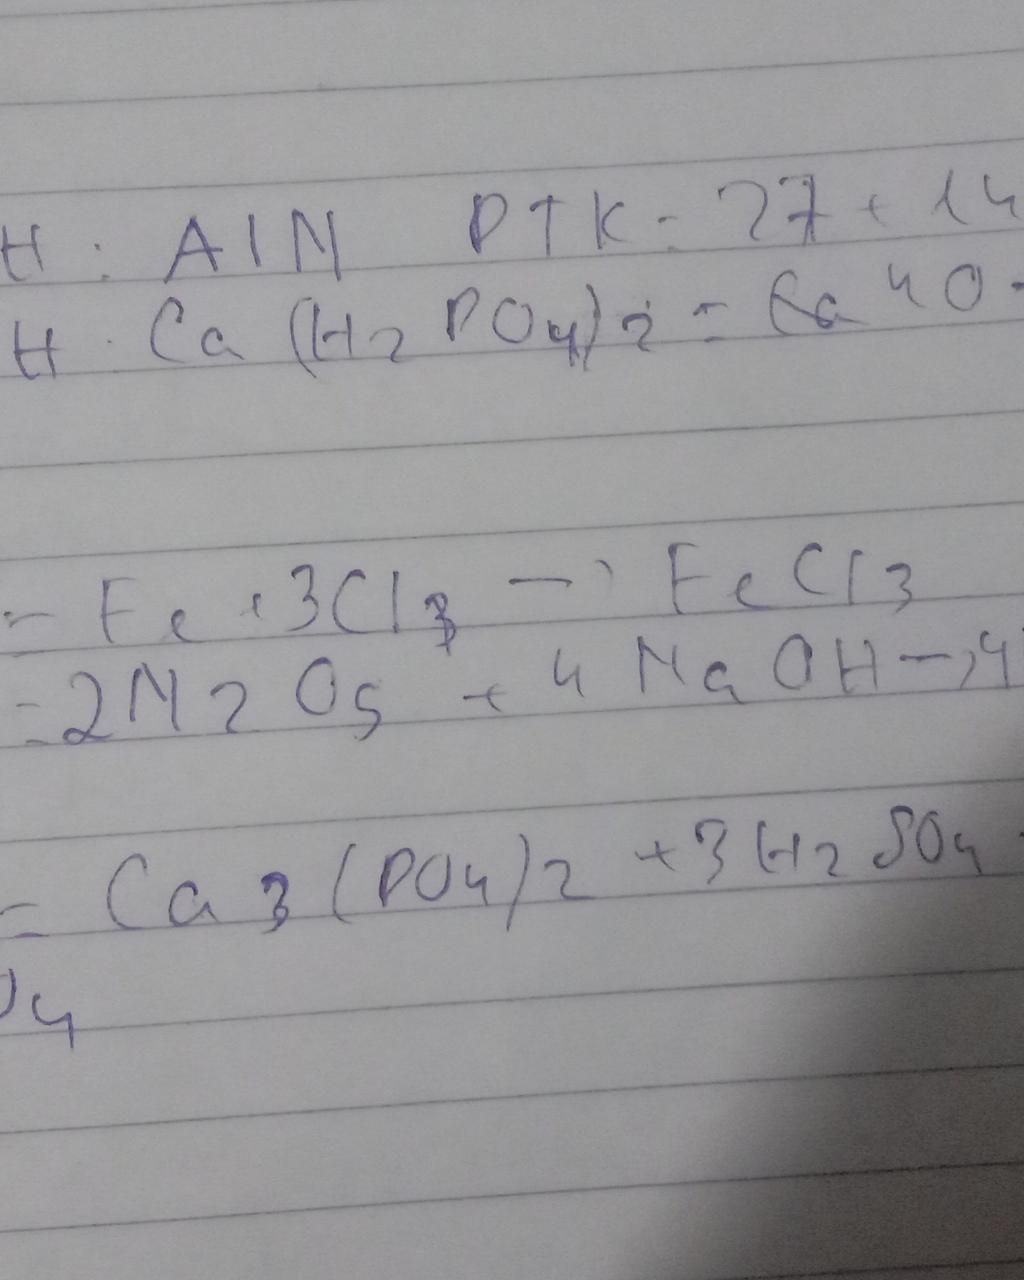 H : AlN PTK = 27 + 14
H : Ca (H2 PO4)2 = Ca 40
= Fe + 3Cl3 -> FeCl3
= 2N2O5 + 4 NaOH -> 4
= Ca3(PO4)2 + 3H2SO4
O4